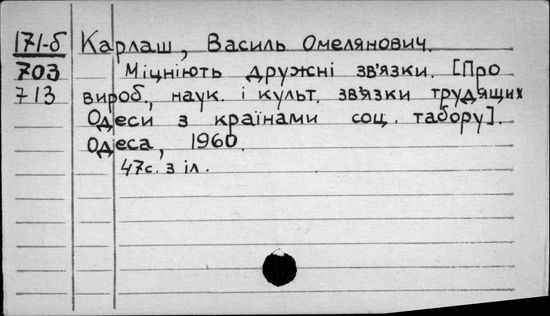 171-б Карлаш, Василь Омелянович.
703 Міцніють дружні зв'язки. [Про
713 вироб., наук. і культ. зв'язки трудящих
Одеси з країнами соц. табору].
Одеса, 1960.
47с. з іл.